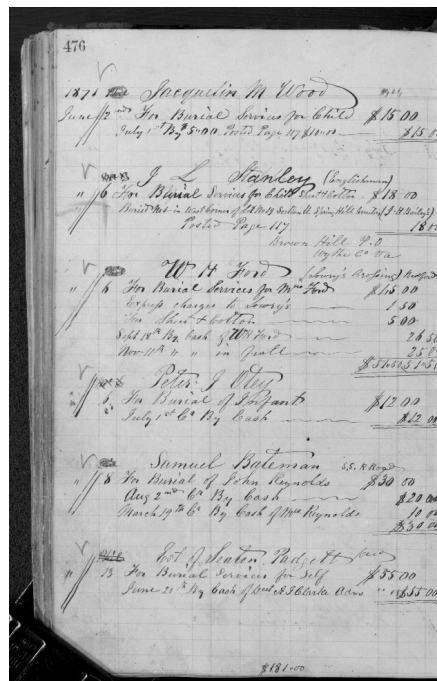 476
1871 Jacquelin M Wood
June 2nd For Burial Services for Child $15.00
July 1st By $5.00 Posted Page 117 $10.00 $15.0
J L Stanley (Englishman)
" 6 For Burial Services for Child Shirt & Cotton $18.00
Buried West in West corner of Lot No 19 Section Spring Hill (J H Bailey's) 18.00
Posted Page 117
Brown Hill P.O
Wythe Co Va
W H Ford (Lowry's Crossing) Bedford
" 6 For Burial Services for Mrs Ford $15.00
Express charges to Lowry's 1.50
For Shirt & Cotton 5 00
Sept 18th By Cash of W H Ford 26 50
Nov 11th " " in full 25 0
$51.50 $51.50
Peter J Otey
" 6 For Burial of Infant $12.00
July 1st Cr By Cash $12 00
Samuel Bateman S.S. R Road
" 8 For Burial of John Reynolds $30 00
Aug 2nd Cr By Cash $20 00
March 19th Cr By Cash of Mrs Reynolds 10 00
$30 00
Est of Seaton Padgett
" 13 For Burial Services for Self $55.00
June 21st By Cash of A J Clarke Admr $55.00
$181.00